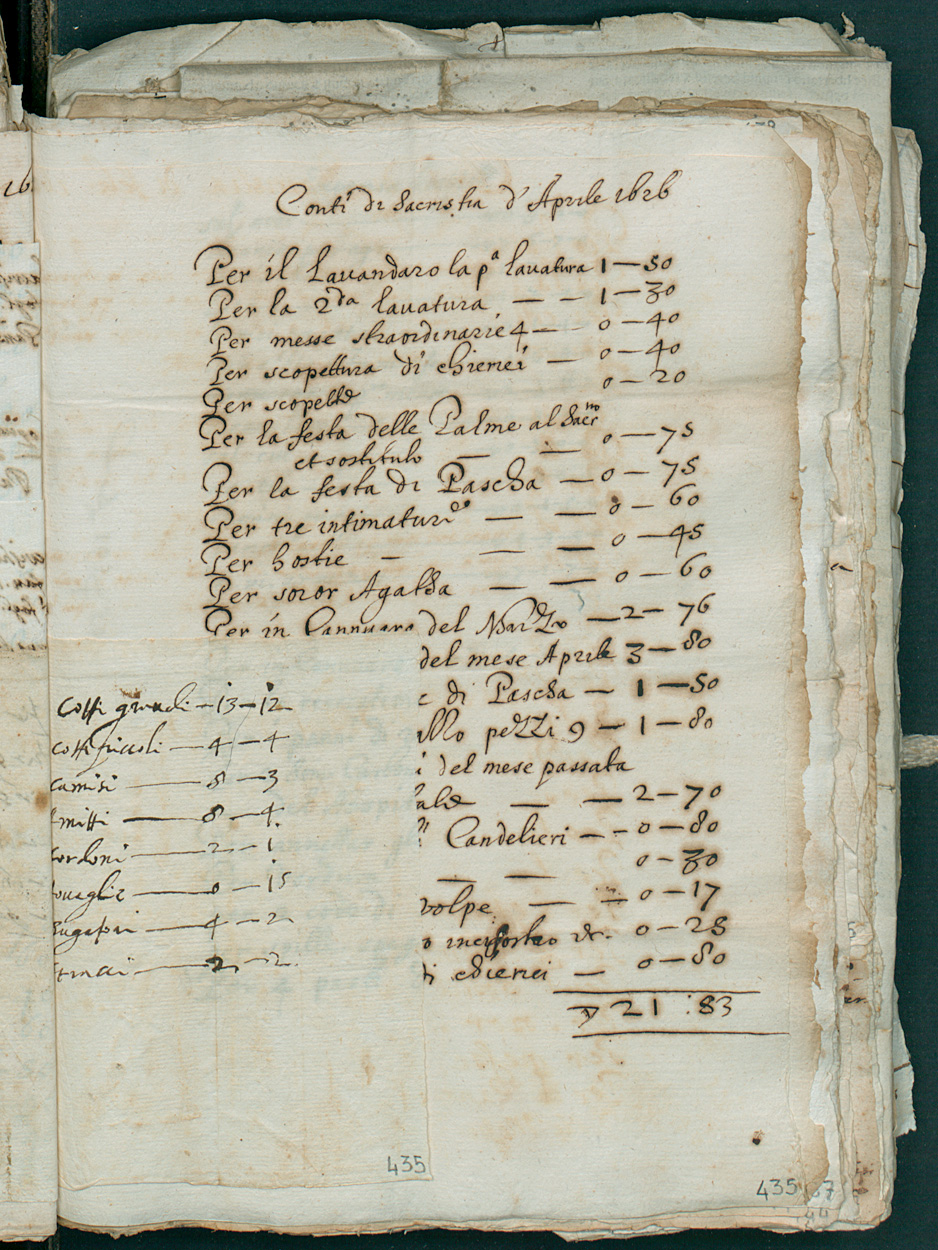 Conti di Sacristia d'Aprile 1626
Per il Lavandaro la pª lavatura 1 — 50
Per la 2da lavatura — — 1 — 30
Per messe straordinarie 4 — 0 — 40
Per scopettura di chierici — 0 — 40
Per scopette 0 — 20
Per la festa delle Palme al Sacrno
et sostituto — — 0 — 75
Per la festa di Pascha — 0 — 75
Per tre intimature — — 0 — 60
Per hostie — — — 0 — 45
Per soror Agatha — — 0 — 60
Per in Cannuara del Marzo — 2 — 76
del mese Aprile 3 — 80
e di Pascha — 1 — 50
illo pezzi 9 — 1 — 80
i del mese passata
ale — — 2 — 70
Candelieri — — 0 — 80
— — 0 — 30
volpe — — 0 — 17
o incostro &c. 0 — 25
ti chierici — 0 — 80
21 : 83
Cotti grandi — 13 — 12
cotti picoli — 4 — 4
camisi — 8 — 3
mitti — 8 — 4
cordoni — 2 — 1
tovaglie — 0 — 15
sugatori — 4 — 2
— 2 — 2
435
435